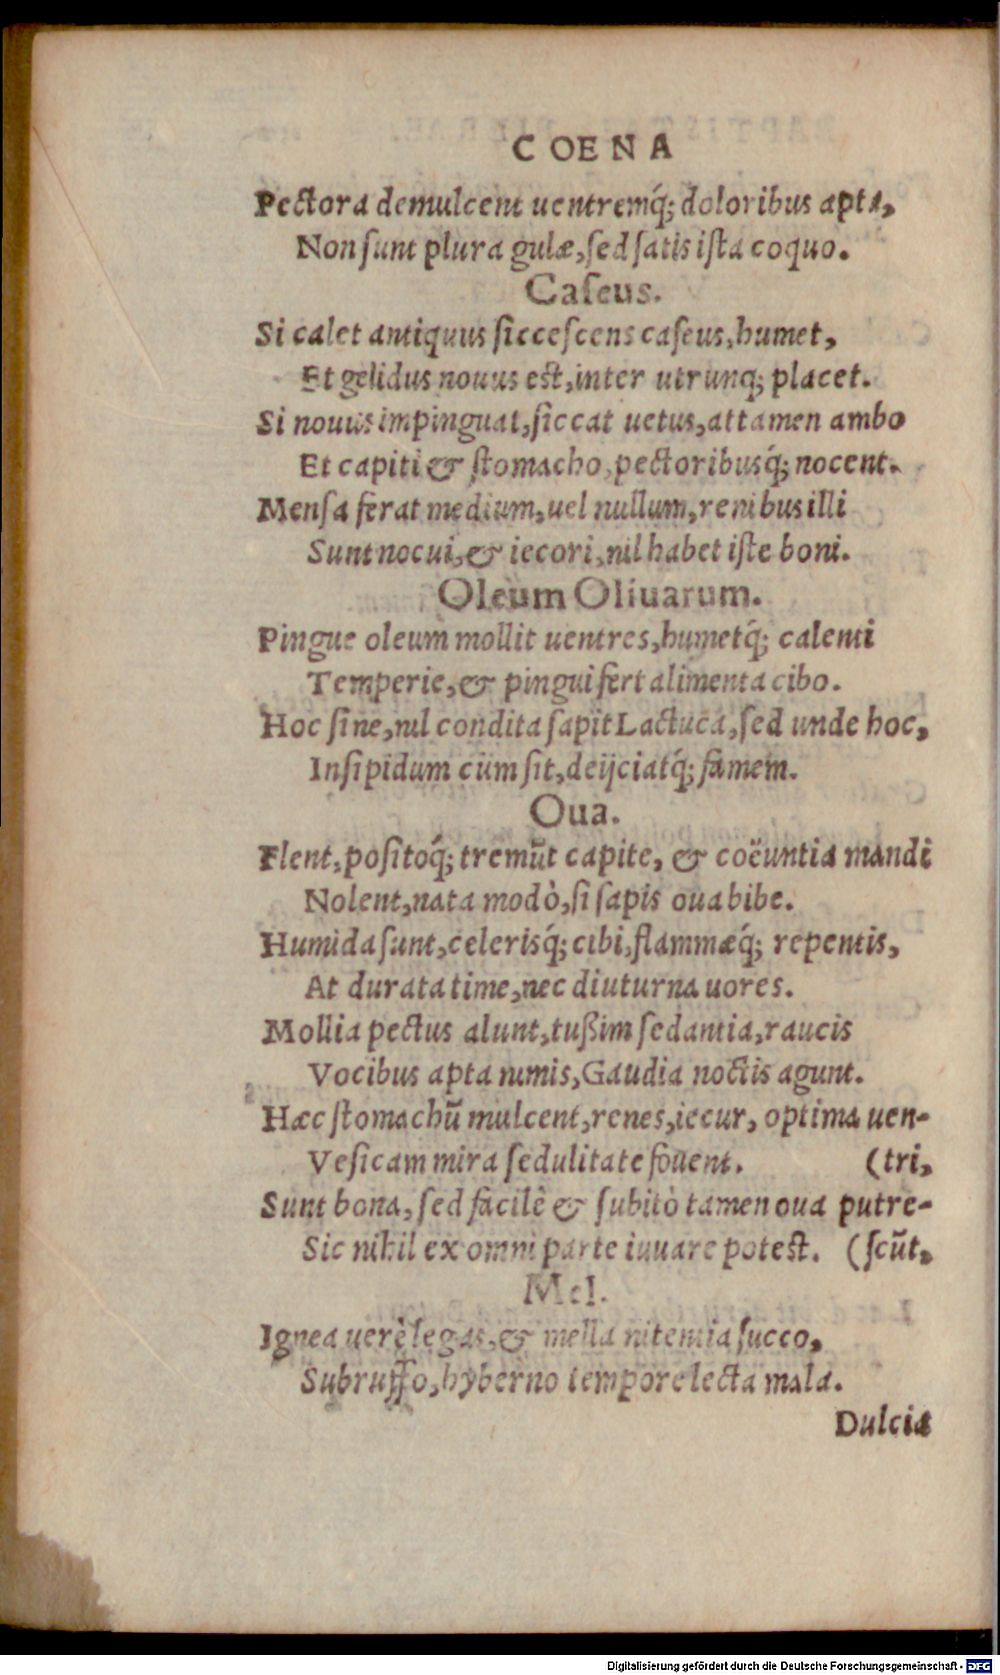 COENA
Pectora demulcent uentremq́; doloribus apta,
Non sunt plura gulæ, sed satis ista coquo.
Caseus.
Si calet antiquus siccescens caseus, humet,
Et gelidus nouus est, inter utrunq; placet.
Si nouus impinguat, siccat uetus, attamen ambo
Et capiti & stomacho, pectoribusq́; nocent.
Mensa ferat medium, uel nullum, renibus illi
Sunt nocui, & iecori, nil habet iste boni.
Oleum Oliuarum.
Pingue oleum mollit uentres, humetq́; calenti
Temperie, & pingui fert alimenta cibo.
Hoc sine, nil condita sapit Lactuca, sed unde hoc,
Insipidum cùm sit, deijciatq́; famem.
Oua.
Flent, positoq́; tremūt capite, & coëuntia mandi
Nolent, nata modò, si sapis oua bibe.
Humida sunt, celerisq́; cibi, flammæq́; repentis,
At durata time, nec diuturna uores.
Mollia pectus alunt, tußim sedantia, raucis
Vocibus apta nimis, Gaudia noctis agunt.
Hæc stomachū mulcent, renes, iecur, optima uen-
Vesicam mira sedulitate fouent. (tri,
Sunt bona, sed facilè & subitò tamen oua putre-
Sic nihil ex omni parte iuuare potest. (scūt,
Mel.
Ignea uerè legas, & mella nitentia succo,
Subruffo, hyberno tempore lecta mala.
Dulcia
Digitalisierung gefördert durch die Deutsche Forschungsgemeinschaft - DFG